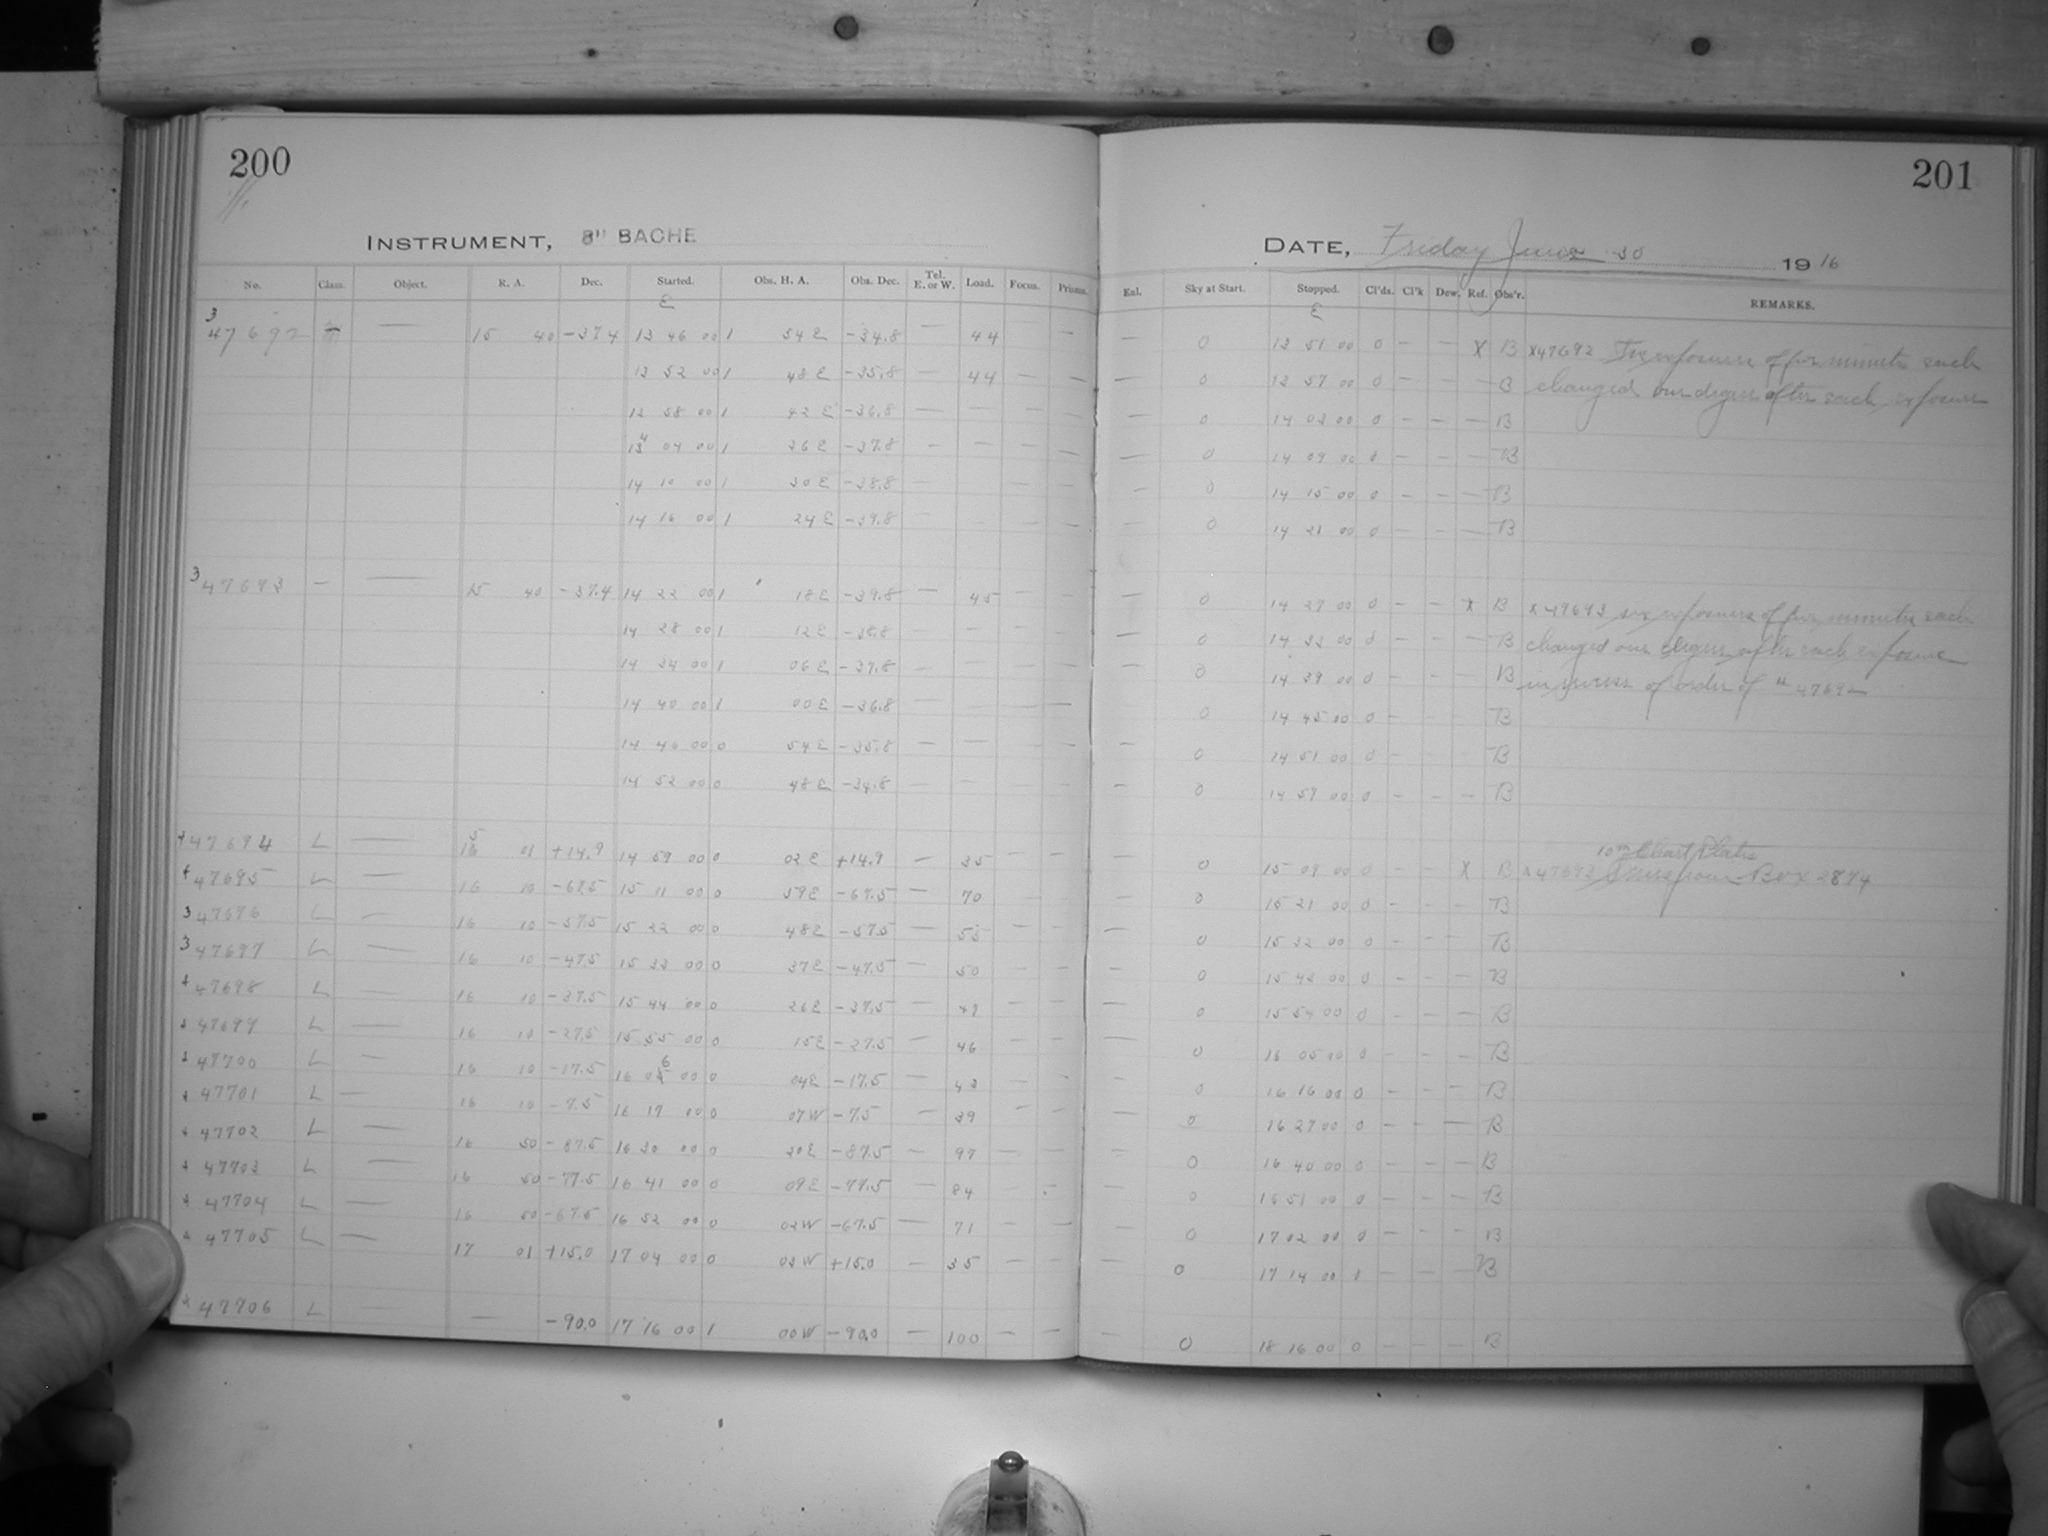 200
201
INSTRUMENT, 8" BACHE
DATE, Friday June 30 1916
No. Class. Object. R. A. Dec. Started. Obs. H. A. Obs. Dec. Tel. E. or W. Load. Focus. Prisms. Exl. Sky at Start. Stopped. Cl'ds. Cl'k Dew. Ref. Obs'r. REMARKS.
E E
3 47692 — 15 40 -37.4 13 46 00 1 54 E -34.8 — 44 — — — 0 13 51 00 0 — — X B X47692 Six exposures of five minutes each
13 52 00 1 48 E -35.8 — 44 — — — 0 13 57 00 0 - - - B changed one degree after each exposure
13 58 00 1 42 E -36.8 — — — — — 0 14 03 00 0 - - - B
14 04 00 1 36 E -37.8 — — — — — 0 14 09 00 0 - - - B
14 10 00 1 30 E -38.8 — — — 0 14 15 00 0 - - - B
14 16 00 1 24 E -39.8 0 14 21 00 0 - - - B
3 47693 — — 15 40 -37.4 14 22 00 1 18 E -39.8 — 45 — — 0 14 27 00 0 - - X B X47693 six exposures of five minutes each
14 28 00 1 12 E -38.8 0 14 33 00 0 - - - B changed one degree after each exposure
14 34 00 1 06 E -37.8 0 14 39 00 0 - - - B in reverse of order of # 47692
14 40 00 1 00 E -36.8 0 14 45 00 0 - - - B
14 46 00 0 54 E -35.8 0 14 51 00 0 - - - B
14 52 00 0 48 E -34.8 0 14 57 00 0 - - - B
10m Chart Plates
47694 L — 15 01 +14.9 14 59 00 0 02 E +14.9 — 35 — — — 0 15 09 00 0 - - X B Box 2874
47695 L — 16 10 -67.5 15 11 00 0 59 E -67.5 — 70 0 15 21 00 0 - - - B
3 47696 L — 16 10 -57.5 15 22 00 0 48 E -57.5 — 55 — — — 0 15 32 00 0 - - - B
3 47697 L — 16 10 -47.5 15 33 00 0 37 E -47.5 — 50 — — — 0 15 43 00 0 - - - B
47698 L — 16 10 -37.5 15 44 00 0 26 E -37.5 — 47 — — — 0 15 54 00 0 - - - B
47699 L — 16 10 -27.5 15 55 00 0 15 E -27.5 — 46 — — — 0 16 05 00 0 - - - B
47700 L — 16 10 -17.5 16 06 00 0 04 E -17.5 — 43 — — — 0 16 16 00 0 - - - B
47701 L — 16 10 -7.5 16 17 00 0 07 W -7.5 — 39 — — — 0 16 27 00 0 - - - B
47702 L — 16 50 -87.5 16 30 00 0 20 E -87.5 — 97 — — — 0 16 40 00 0 - - - B
47703 L — 16 50 -77.5 16 41 00 0 09 E -77.5 — 84 — — — 0 16 51 00 0 - - - B
47704 L — 16 50 -67.5 16 52 00 0 02 W -67.5 — 71 — — — 0 17 02 00 0 - - - B
47705 L — 17 01 +15.0 17 04 00 0 03 W +15.0 — 35 — — — 0 17 14 00 1 - - - B
47706 L — — -90.0 17 16 00 1 00 W -90.0 — 100 — — — 0 18 16 00 0 - - - B